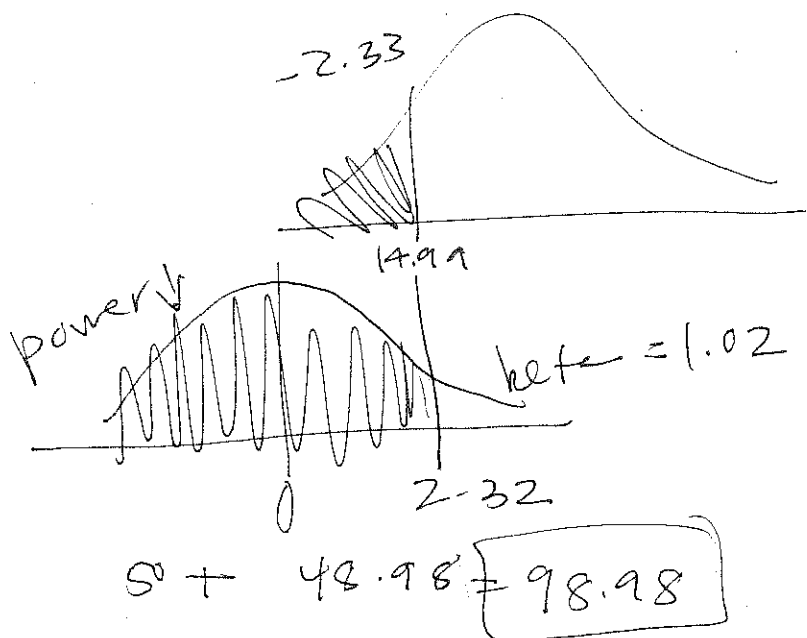 -2.33
14.99
power
beta = 1.02
0 2-32
50 + 48.98 = 98.98